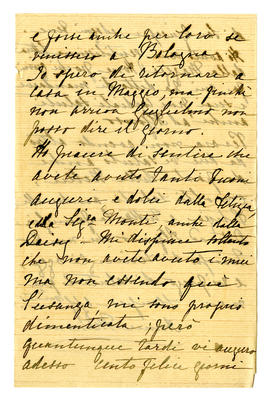 e forse anche per loro se
venissero a Bologna
Io spero di ritornare a
casa in Maggio, ma finchè
non arriva Guglielmo non
posso dire il giorno.
Ho piacere di sentire che
avete avuto tanti buoni
auguri e dolci dalla
e dalla Sigra Monti anche dalla
Mi dispiace soltanto
che non avete avuto i miei
ma non essendo quà
l'usanza mi sono proprio
dimenticata; però
quantunque tardi vi auguro
adesso Cento felice giorni